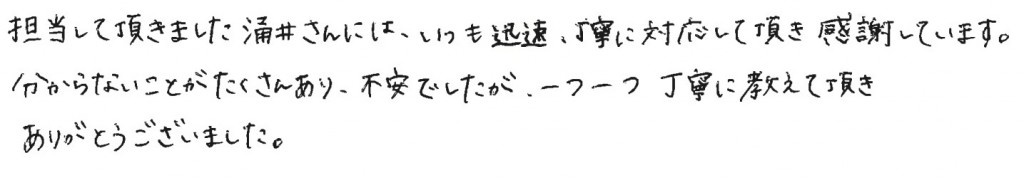 担当して頂きました涌井さんには、いつも迅速、丁寧に対応して頂き感謝しています。
分からないことがたくさんあり、不安でしたが、一つ一つ丁寧に教えて頂き
ありがとうございました。